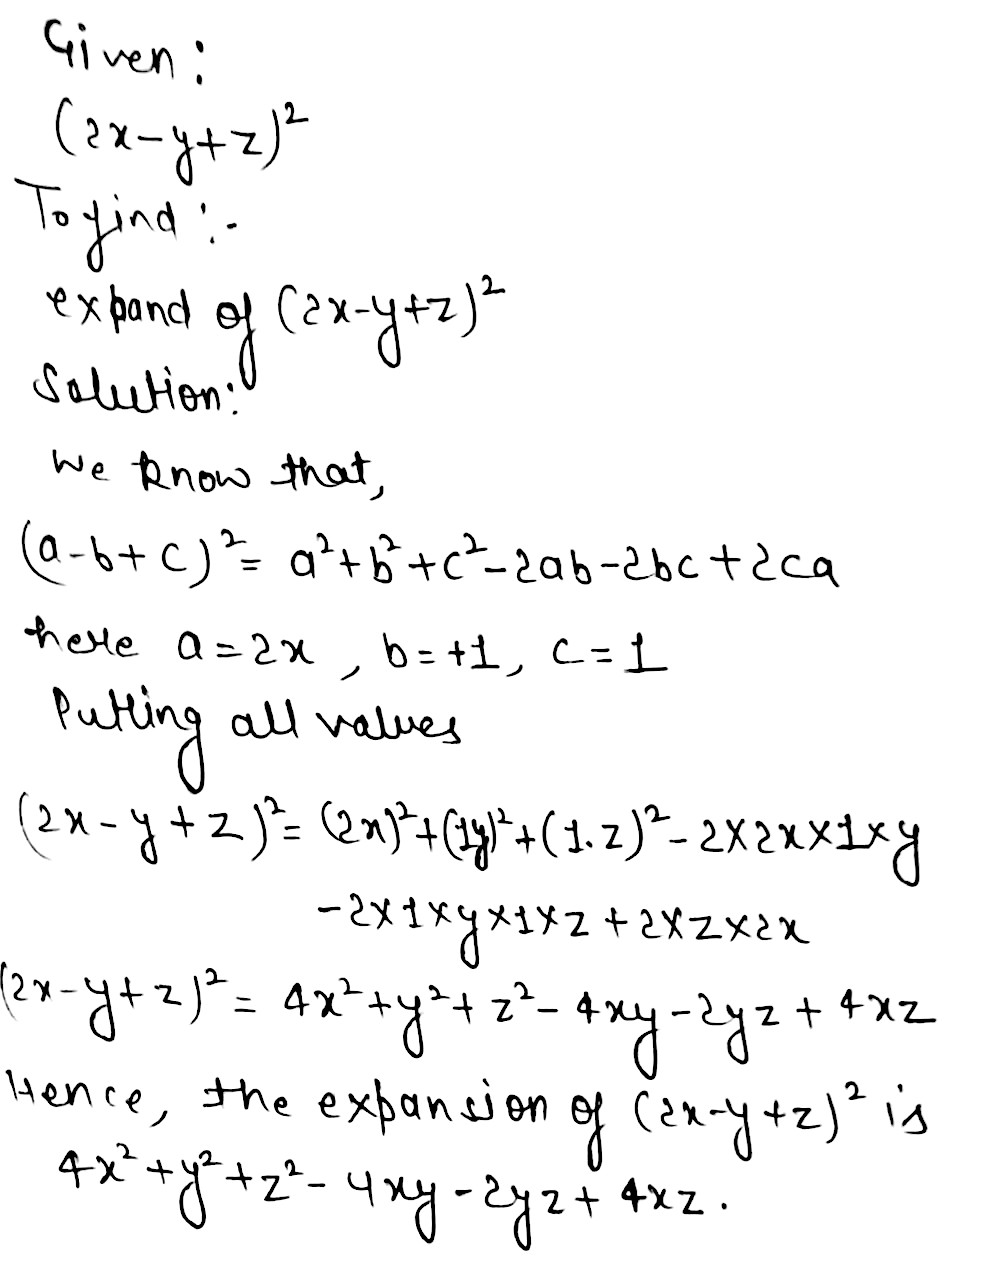 Given:
(2x-y+z)²
To find :-
expand of (2x-y+z)²
Solution:
We know that,
(a-b+c)² = a²+b²+c²-2ab-2bc+2ca
here a=2x, b=+1, c=1
Putting all values
(2x-y+z)² = (2x)²+(1y)²+(1.z)²-2×2x×1×y
-2×1×y×1×z+2×z×2x
(2x-y+z)² = 4x²+y²+z²-4xy-2yz+4xz
Hence, the expansion of (2x-y+z)² is
4x²+y²+z²-4xy-2yz+4xz.